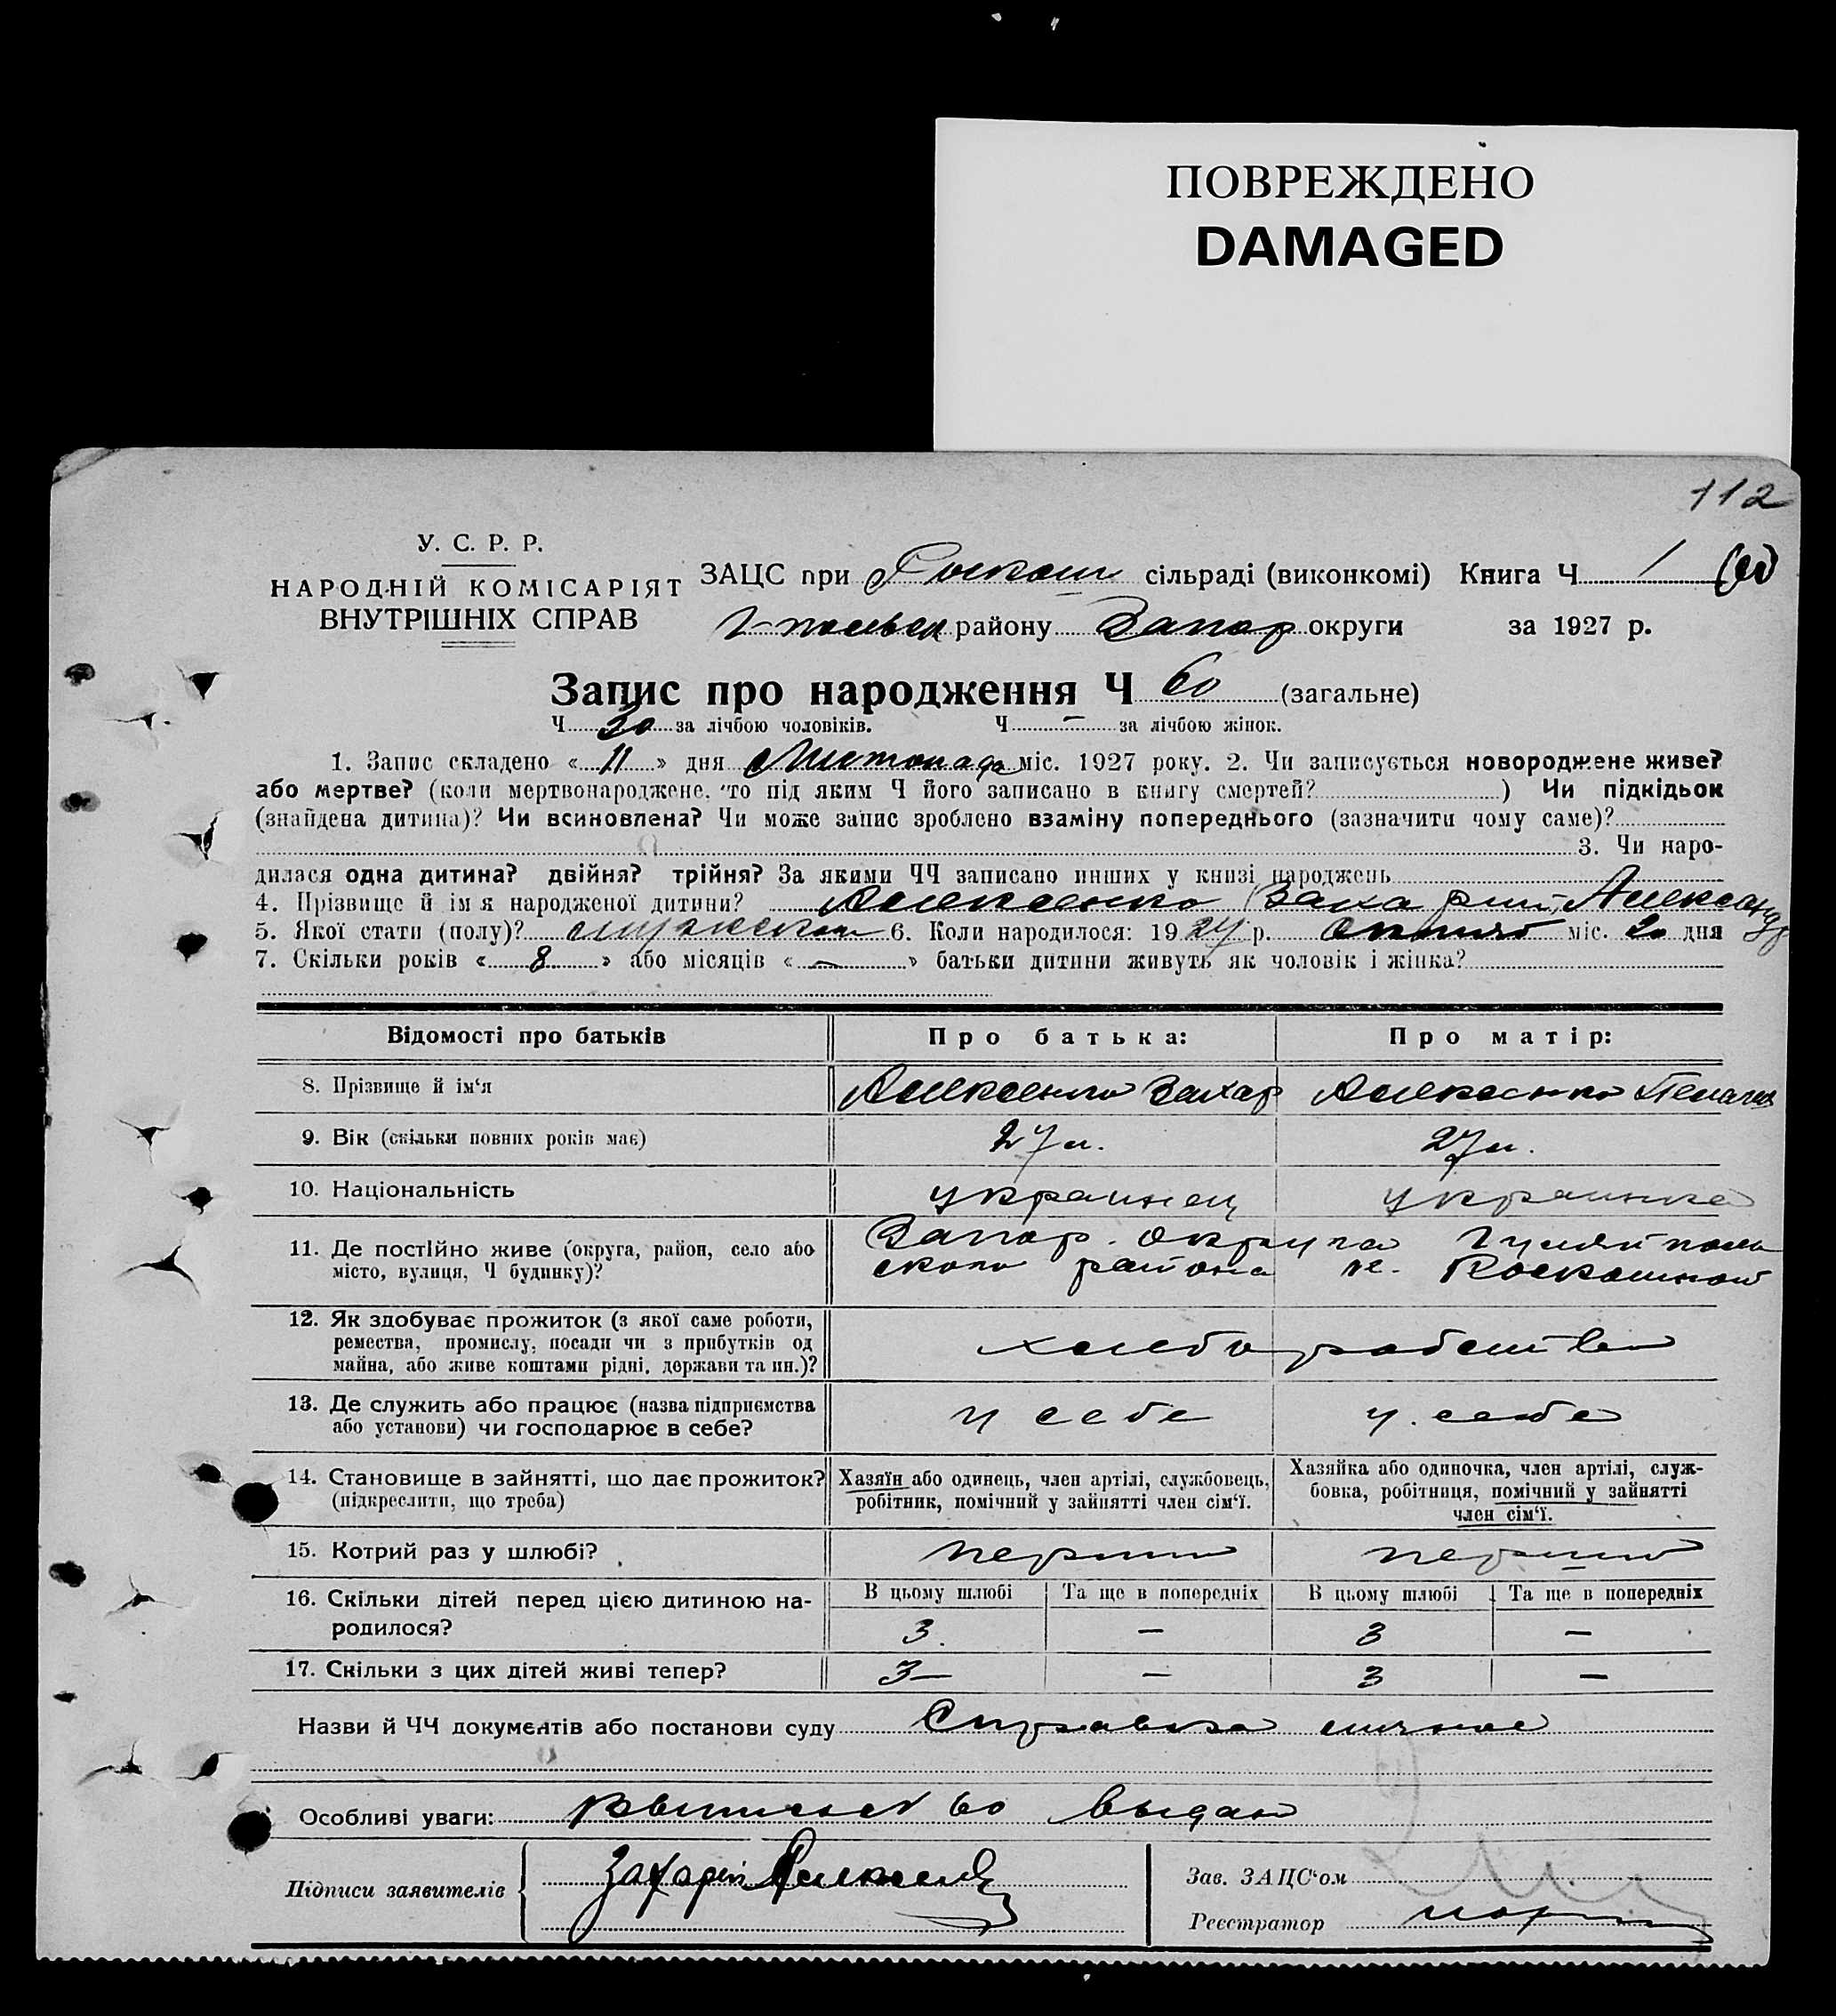 ПОВРЕЖДЕНО
DAMAGED
112
У. С. Р. Р.
НАРОДНІЙ КОМІСАРІЯТ
ВНУТРІШНІХ СПРАВ
ЗАЦС при Роскош сільраді (виконкомі) Книга Ч 1
Г-польск району Запор округи за 1927 р.
Запис про народження Ч 60 (загальне)
Ч 30 за лічбою чоловіків. Ч — за лічбою жінок.
1. Запис складено « 11 » дня Листопада міс. 1927 року. 2. Чи записується новороджене живе?
або мертве? (коли мертвонароджене, то під яким Ч його записано в книгу смертей? ) Чи підкідьок
(знайдена дитина)? Чи всиновлена? Чи може запис зроблено взаміну попереднього (зазначити чому саме)?
3. Чи наро-
дилася одна дитина? двійня? трійня? За якими ЧЧ записано инших у книзі народжень
4. Прізвище й ім я народженої дитини? Алексенко Александр
5. Якої стати (полу)? мужском 6. Коли народилося: 1927 р. міс. 20 дня
7. Скільки років « 8 » або місяців « — » батьки дитини живуть як чоловік і жінка?
Відомості про батьків Про батька: Про матір:
8. Прізвище й ім‘я Алексенко Захар Алексенко Пелагия
9. Вік (скільки повних років має) 27 л. 27 л.
10. Національність украинец украинка
11. Де постійно живе (округа, район, село або місто, вулиця, Ч будинку)? Запор. Округа Гуляйполь
ского района Роскошной
12. Як здобуває прожиток (з якої саме роботи,
ремества, промислу, посади чи з прибутків од
майна, або живе коштами рідні, держави та ин.)? хлебо
13. Де служить або працює (назва підприємства
або установи) чи господарює в себе? у себе у себе
14. Становище в зайнятті, що дає прожиток?
(підкреслити, що треба)
Хазяїн або одинець, член артілі, службовець,
робітник, помічний у зайнятті член сім‘ї.
Хазяйка або одиночка, член артілі, служ-
бовка, робітниця, помічний у зайнятті
член сім‘ї.
15. Котрий раз у шлюбі?
16. Скільки дітей перед цією дитиною на-
родилося?
В цьому шлюбі Та ще в попередніх В цьому шлюбі Та ще в попередніх
3 — 3 —
17. Скільки з цих дітей живі тепер? 3 — 3 —
Назви й ЧЧ документів або постанови суду Справка
Особливі уваги: 60 выдан
Підписи заявителів Захарій
Зав. ЗАЦС‘ом
Реєстратор